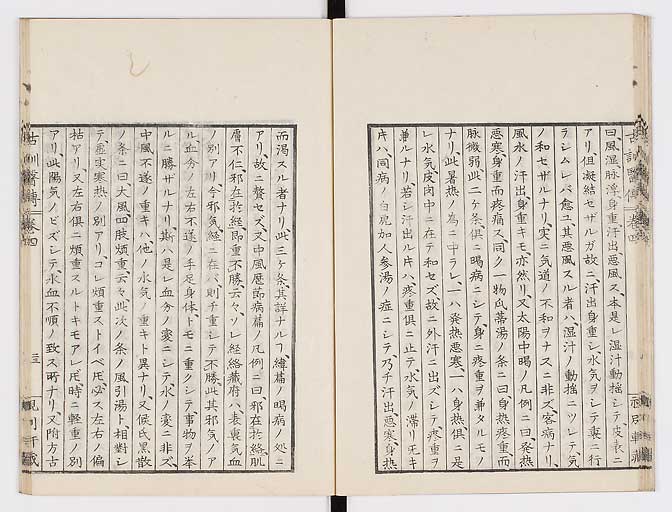 曰風湿脉浮身重汗出悪風ス本是レ湿汁動揺シテ皮表ニ
アリ但凝結セザルガ故ニ汗出身重シ水気ヲシテ裏ニ行
ラシムレバ愈ユ其悪風スル者ハ湿汁ノ動揺ニツレテ気
ノ和セザルナリ実ニ気道ノ不和ヲナスニ非ズ客病ナリ
風水ノ汗出身重キモ亦然リ又太陽中暍ノ凡例ニ曰発熱
悪寒身重而疼痛ス同ク一物瓜蔕湯ノ条ニ曰身熱疼重而
脉微弱此二ケ条倶ニ暍病ニシテ身ニ疼重ヲ兼タルモノ
ナリ此暑熱ノ為ニ中ラレ一ハ発熱悪寒一ハ身熱倶ニ是
レ水気皮肉中ニ在テ和セズ故ニ外汗ニ出ズシテ疼重ヲ
兼ルナリ若シ汗出ル片ハ疼重倶ニ止テ水気ノ滞リ旡キ
片ハ同病ノ白虎加人参湯ノ症ニシテ乃チ汗出悪寒身熱
而渇スル者ナリ此三ケ条其詳ナルコ緯篇ノ暍病ノ処ニ
アリ故ニ贅セズ又中風歴節病篇ノ凡例ニ曰邪在於絡肌
膚不仁邪在於経即重不勝云々ソレ経絡蔵府ハ表裏気血
ノ別アリ今邪気経ニ在バ則チ重シテ不勝此其邪気ノア
ル血分ノ左右不遂ノ手足身体トモニ重クシテ事物ヲ挙
ルニ勝ザルナリ斯ハ是レ血分ノ変ニシテ水ノ変ニ非ズ
中風不遂ノ重キハ他ノ水気ノ重キト異ナリ又候氏黒散
ノ条ニ曰大風四肢煩重云々此次ノ条ノ風引湯ト相對シ
テ虚実寒熱ノ別アリコレ煩重ストイヘ𪜈必ス左右ノ偏
枯アリ又左右倶ニ煩重スルトキモアレ𪜈時ニ軽重ノ別
アリ此陽気ノビズシテ水血不順ノ致ス所ナリ又附方古
古訓醫傳 巻四